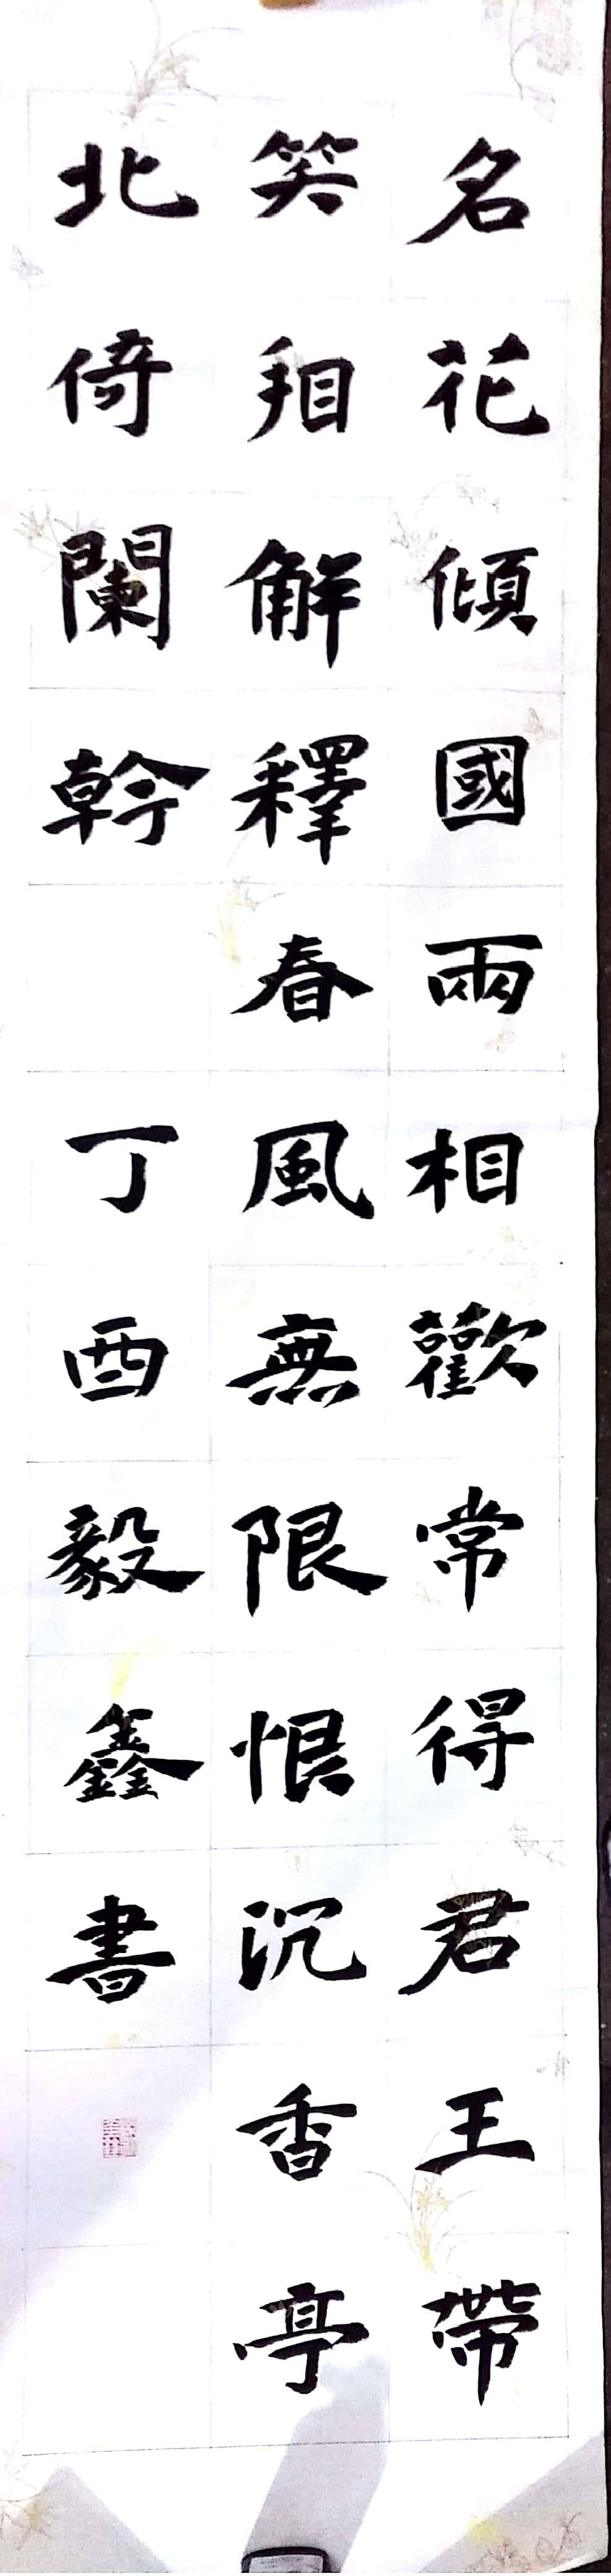 名花傾國兩相歡常得君王帶
笑看解釋春風無限恨沉香亭
北倚闌幹 丁酉毅鑫書